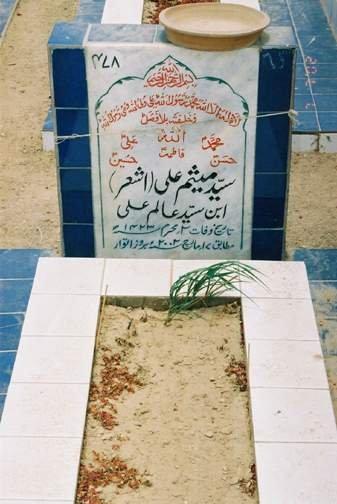 ۴۷۸
بسم اللہ الرحمن الرحیم
لا الہ الا اللہ محمد رسول اللہ علی ولی اللہ وصی رسول اللہ
و خلیفتہ بلا فصل
محمدؐ اللہ علیؑ
حسنؑ فاطمہؑ حسینؑ
سید میثم علی (اشعر)
ابن سید عالم علی
تاریخ وفات ۳ محرم ۱۴۲۳ھ
مطابق ۱۷ مارچ ۲۰۰۲ء بروز اتوار